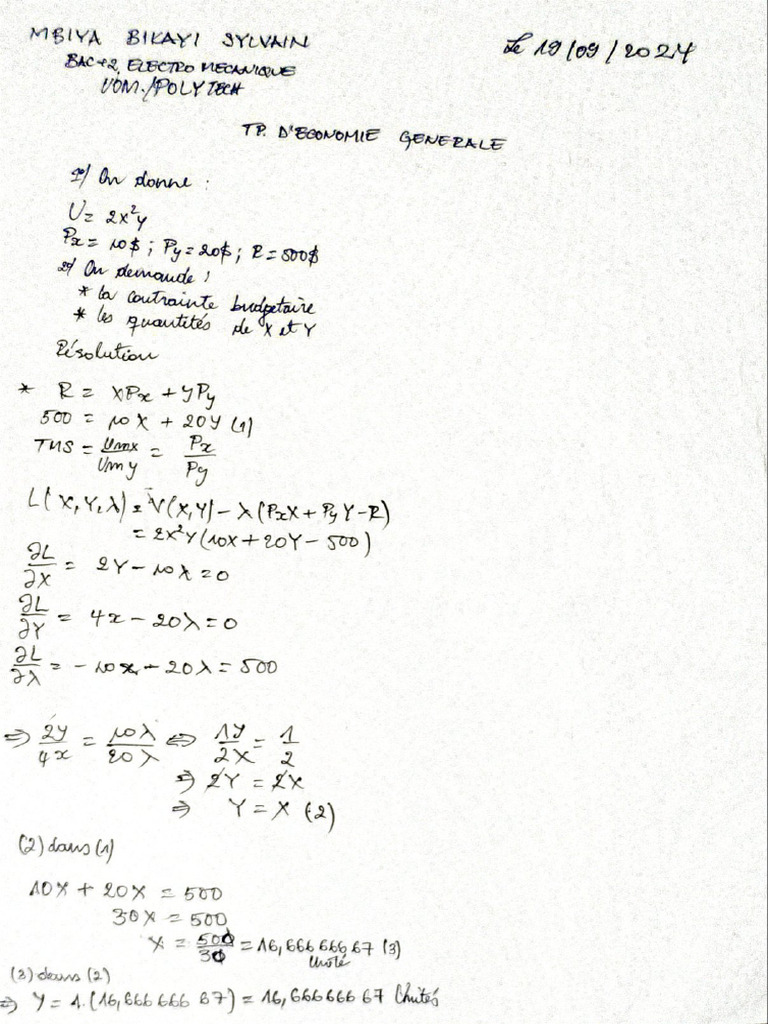 MBIYA BIKAYI SYLVAIN
Le 19/09/2024
BAC+2, ELECTRO MECANIQUE
UOM./POLYTECH
TP. D'ECONOMIE GENERALE
1°/ On donne :
U = 2x²y
Px = 10$ ; Py = 20$ ; R = 500$
2°/ On demande :
* la contrainte budgetaire
* les quantités de X et Y
Résolution
* R = XPx + YPy
500 = 10X + 20Y (1)
TMS = Umx/Umy = Px/Py
L(X,Y,λ) = V(X,Y) - λ(PxX + PyY - R)
= 2x²Y(10X + 20Y - 500)
∂L/∂X = 2Y - 10λ = 0
∂L/∂Y = 4x - 20λ = 0
∂L/∂λ = -10x + 20λ = 500
⇒ 2Y/4x = 10λ/20λ ⇔ 1Y/2X = 1/2
⇒ 2Y = 2X
⇒ Y = X (2)
(2) dans (1)
10X + 20X = 500
30X = 500
X = 500/30 = 16,666 666 67 (3)
Unité
(3) dans (2)
⇒ Y = 1.(16,666 666 67) = 16,666 666 67 Unités